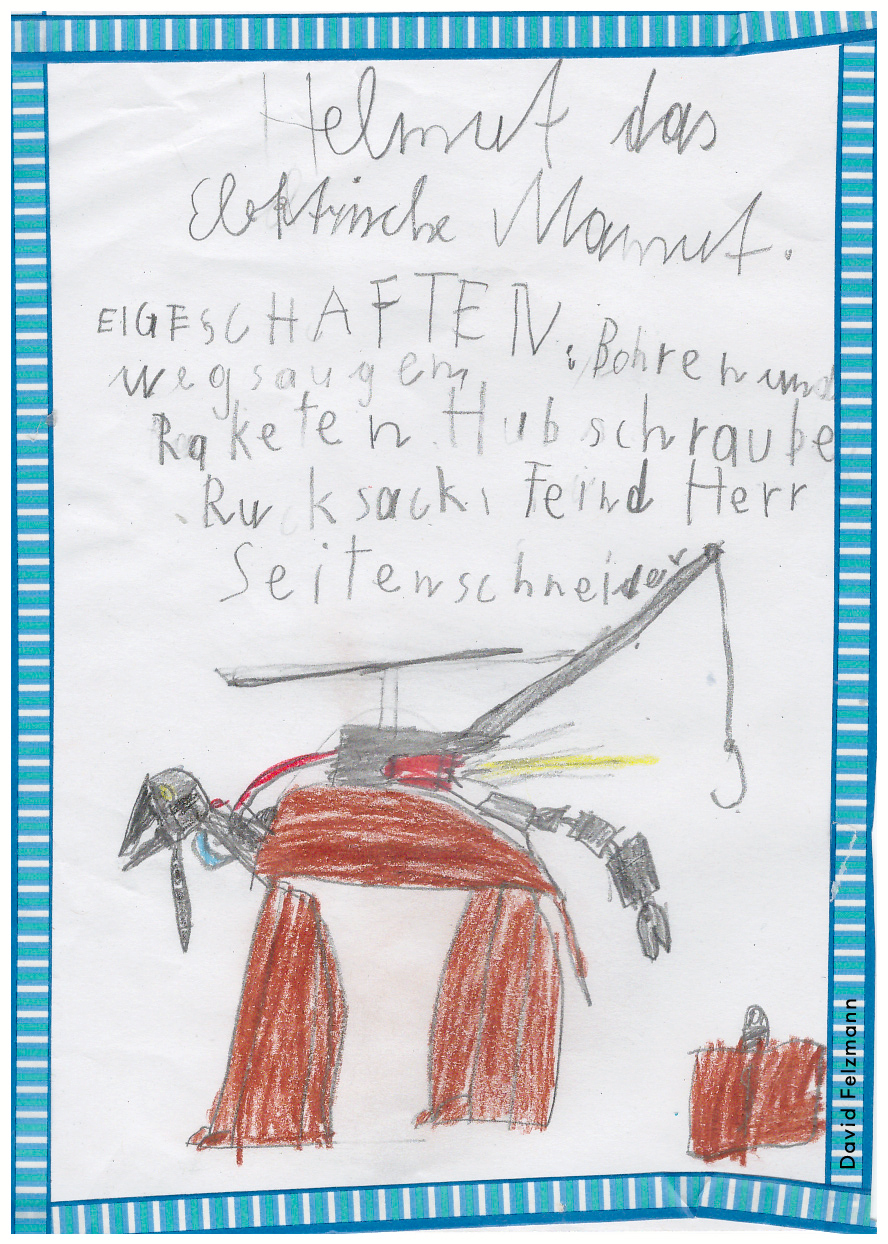 Helmut das
Elektrische Mamut.
EIGESCHAFTEN: Bohren und
wegsaugen,
Raketen Hubschraube
Rucksack, Feind Herr
Seitenschneider
David Felzmann